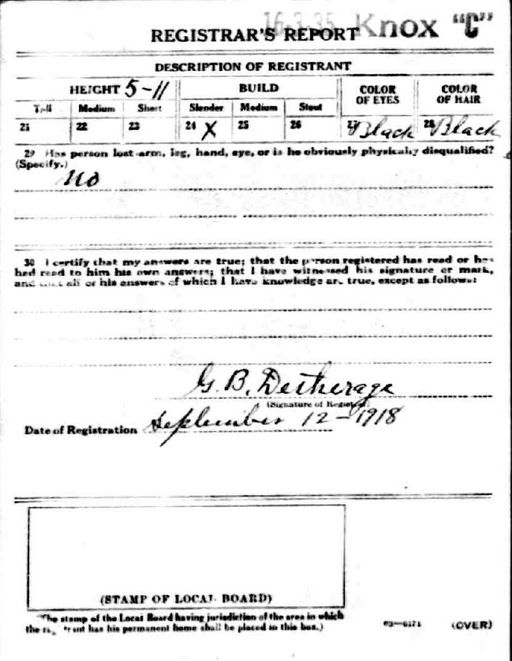 16-3-35 Knox "C"
REGISTRAR'S REPORT
DESCRIPTION OF REGISTRANT
HEIGHT 5-11 BUILD COLOR OF EYES COLOR OF HAIR
Tall Medium Short Slender Medium Stout
21 22 23 24 X 25 26 27 Black 28 Black
29 Has person lost arm, leg, hand, eye, or is he obviously physically disqualified?
(Specify.)
No
30 I certify that my answers are true; that the person registered has read or has
had read to him his own answers; that I have witnessed his signature or mark,
and that all of his answers of which I have knowledge are true, except as follows:
G. B. Detherage
(Signature of Registrar)
Date of Registration September 12-1918
(STAMP OF LOCAL BOARD)
(The stamp of the Local Board having jurisdiction of the area in which
the registrant has his permanent home shall be placed in this box.)
03-6171 (OVER)